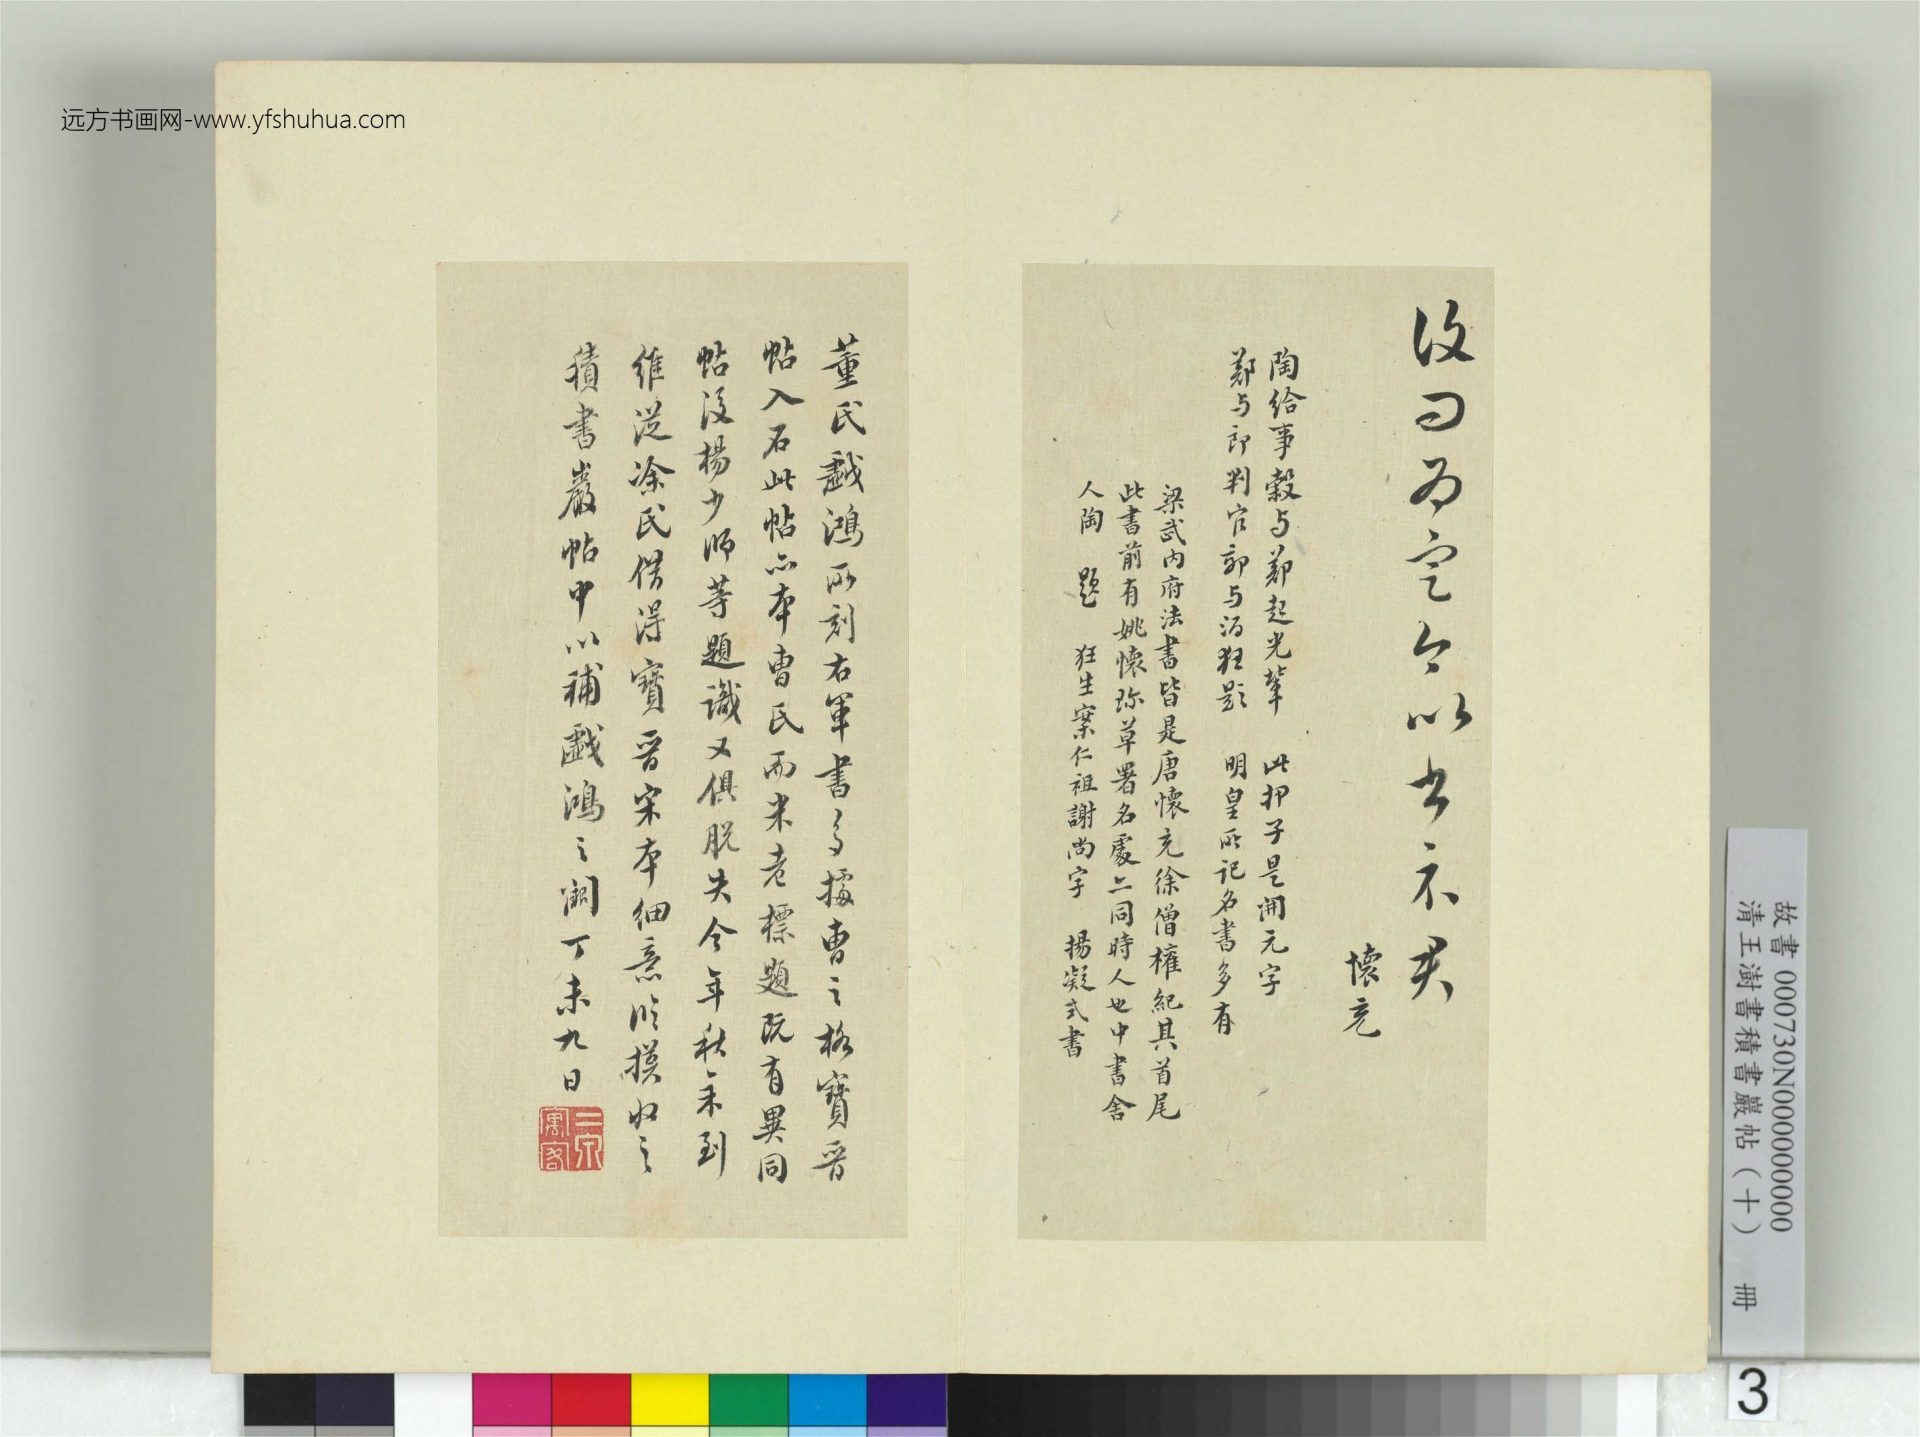 远方书画网-www.yfshuhua.com
後日為定今以書示君
懷充
陶給事穀与鄭起光輩
鄭与郎判官郭与
狂題
此押子是開元字
明皇所記名書多有
梁武內府法書皆是唐懷充徐僧權紀其首尾
此書前有姚懷珎草署名處亦同時人也中書舍
人陶 題
狂生案仁祖謝尚字
楊凝式書
董氏戲鴻所刻右軍書多據曹之格寶晉
帖入石此帖亦本曹氏而米老標題既有異同
帖後楊少師等題識又俱脫失今年秋
到
維從涂氏借得寶晉宋本細意臨摸收之
積書巖帖中以補戲鴻之闕丁未九日
二泉寓客
故書 000730N000000000
清王澍書積書巖帖（十） 冊
3